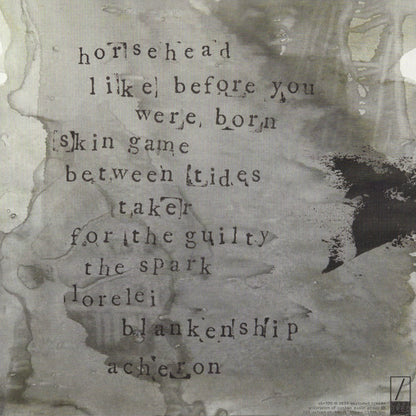 horsehead
like before you
were born
skin game
between tides
taker
for the guilty
the spark
lorelei
blankenship
acheron